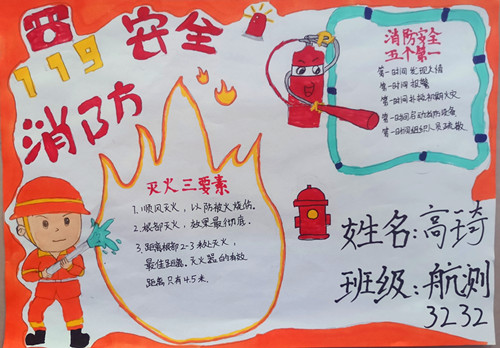 119
安全
消防
消防安全
五个第一
第一时间发现火情
第一时间报警
第一时间扑救初期火灾
第一时间启动消防设备
第一时间组织人员疏散
灭火三要素
1.顺风灭火，以防被火烧伤。
2.根部灭火，效果最彻底。
3.距离根部2-3米处灭火，
最佳距离。灭火器的有效
距离只有4.5米.
姓名:高琦
班级:航测
3232